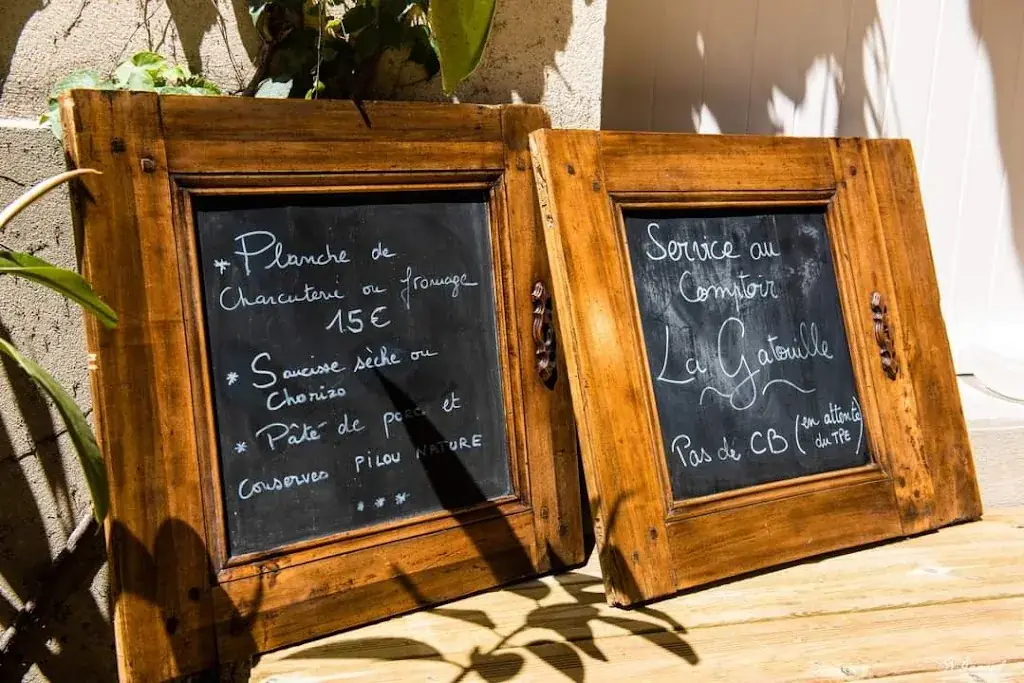 * Planche de
Charcuterie ou fromage
15€
* Saucisse sèche ou
Chorizo
* Pâté de porc et
Conserves PILOU NATURE
* * *
Service au
Comptoir
La Gatouille
Pas de CB (en attente
du TPE)